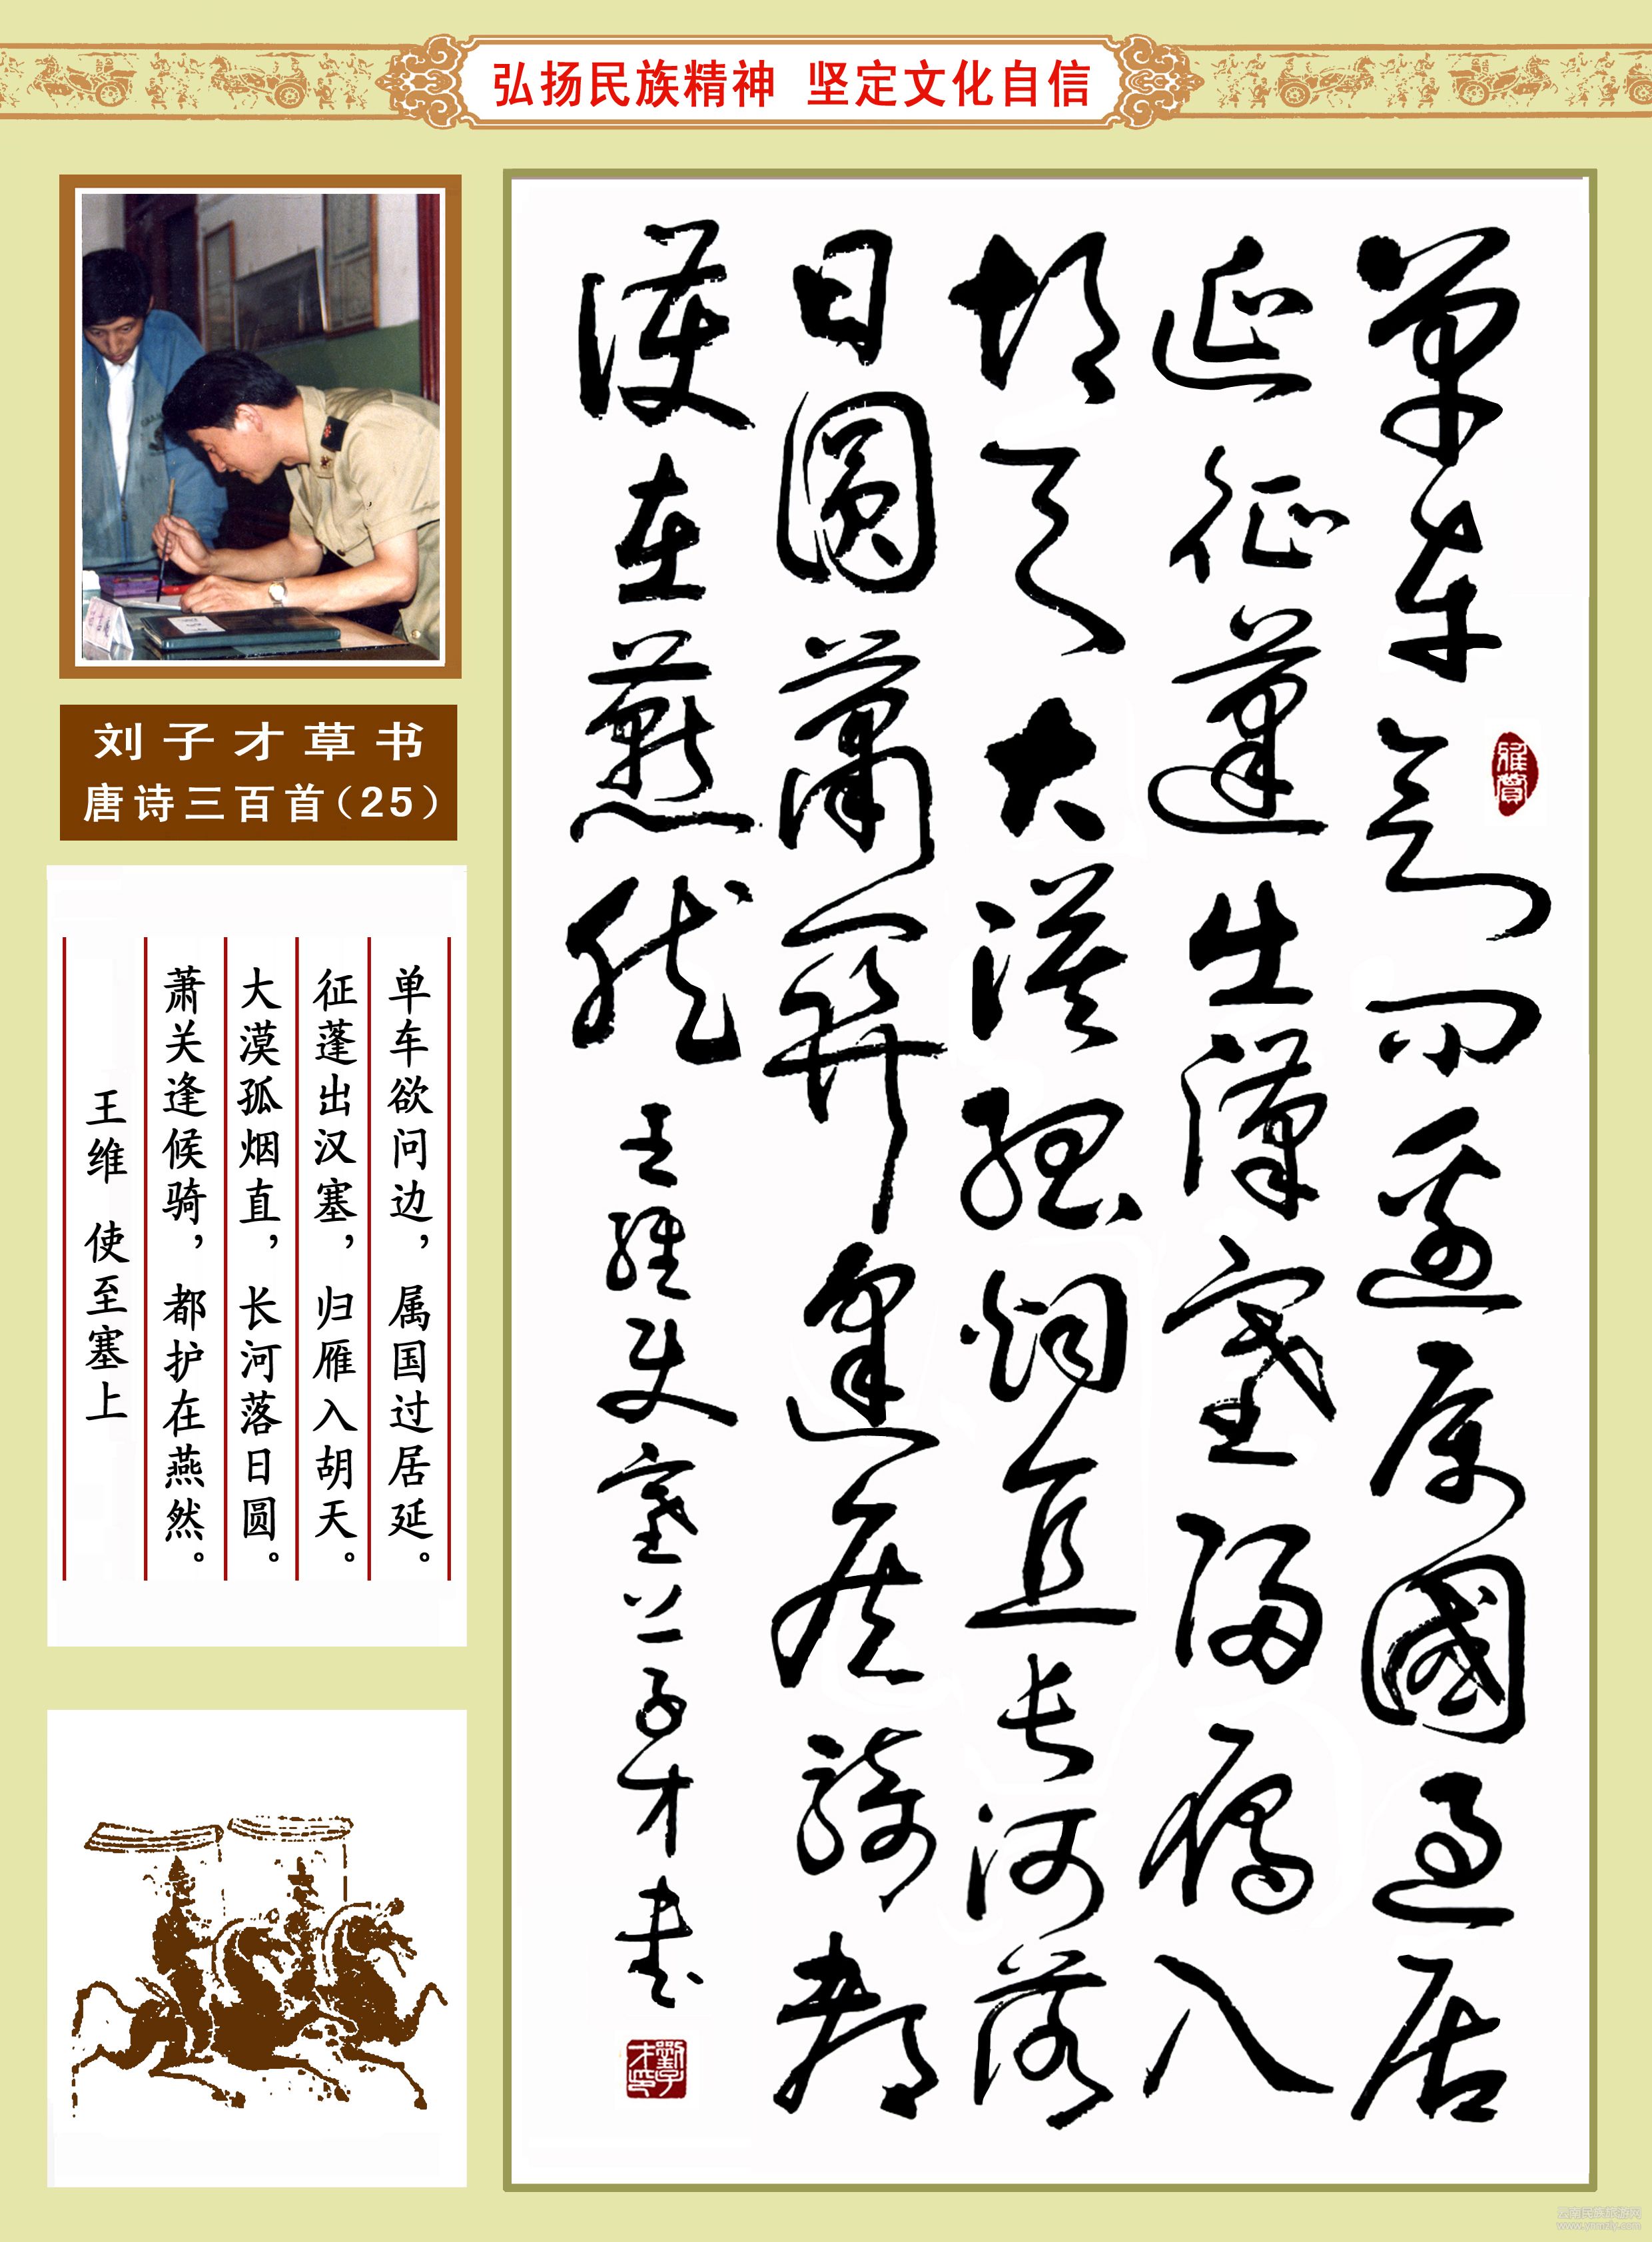 弘扬民族精神 坚定文化自信
刘子才草书
唐诗三百首（25）
单车欲问边，属国过居延。
征蓬出汉塞，归雁入胡天。
大漠孤烟直，长河落日圆。
萧关逢候骑，都护在燕然。
王维 使至塞上
單車欲問邊屬國過居
延征蓬出漢塞歸雁入
胡天大漠孤烟直長河落
日圓蕭關逢候騎都
護在燕然 王維使塞上子才書
雅賞
劉子才印